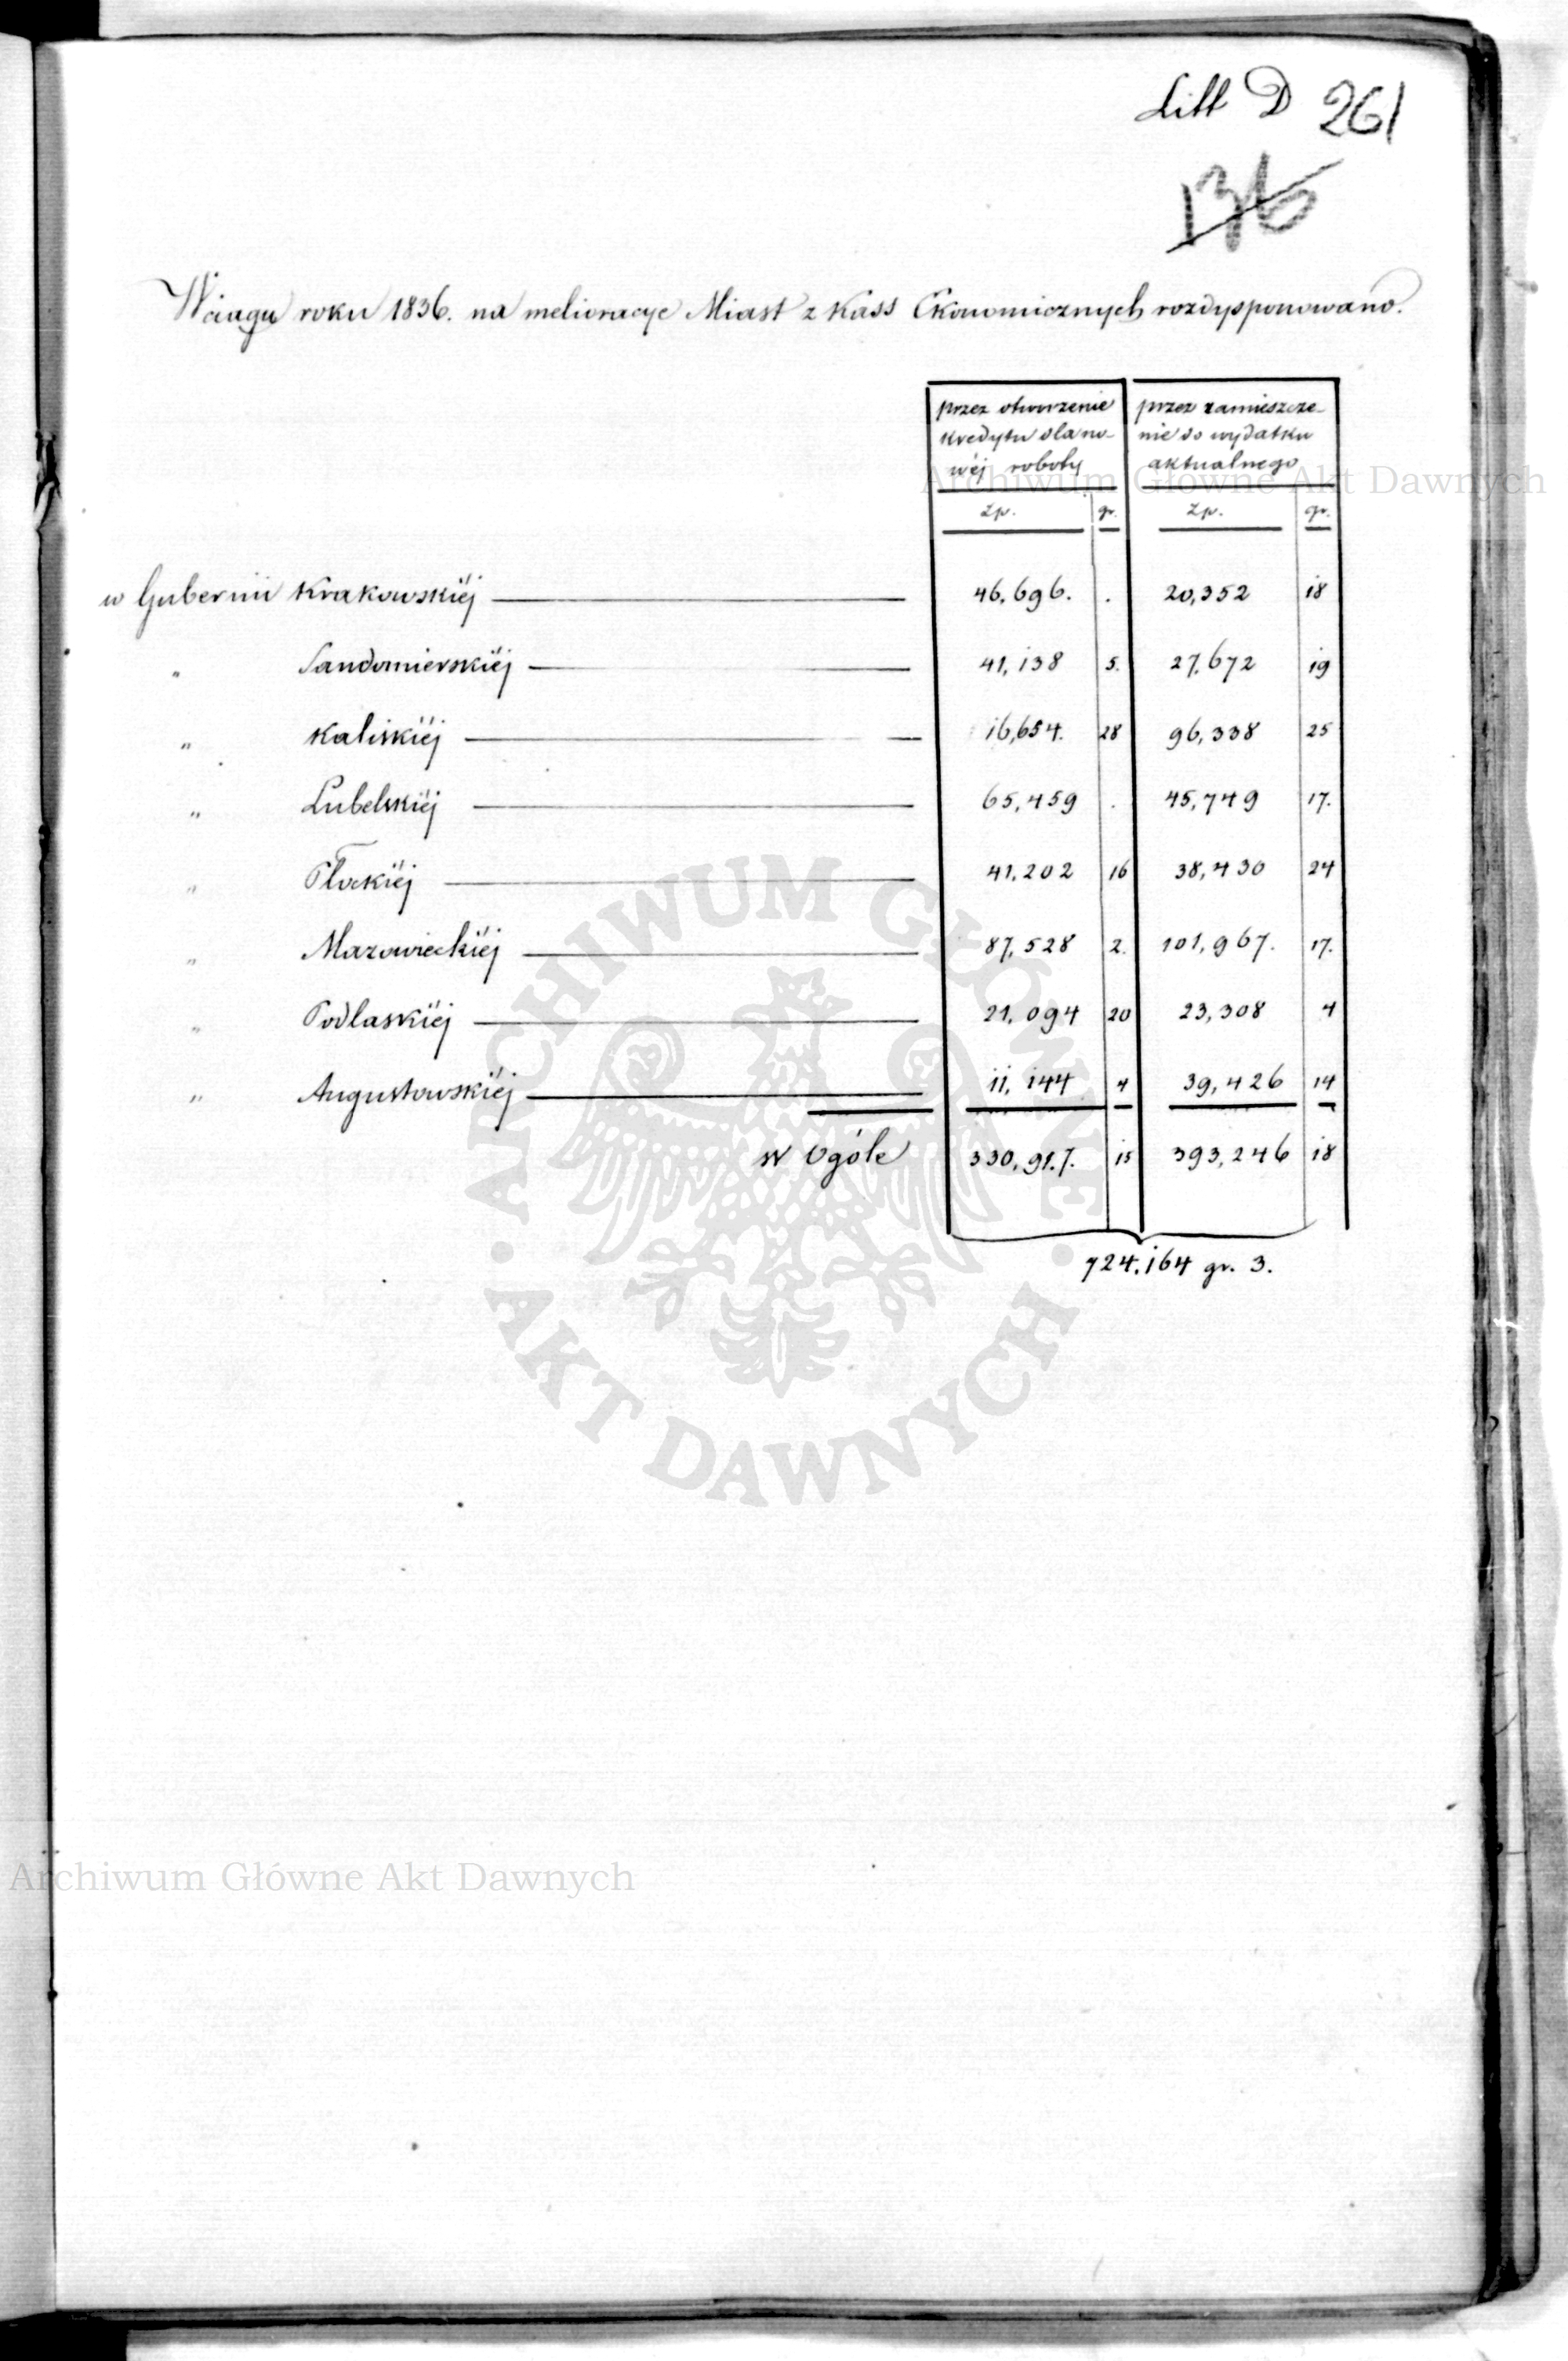 Litt D 261
136
W ciagu roku 1836. na melioracye Miast z Kass Ekonomicznych rozdysponowano.
przez otworzenie kredytu dla no- wéj roboty | przez zamieszcze- nie do wydatku aktualnego
Archiwum Główne Akt Dawnych
zp. gr. zp. gr.
w Gubernii Krakowskiéj 46,696. . 20,352 18
" Sandomierskiéj 41,138 5. 27,672 19
" Kaliskiéj 16,654. 28 96,338 25
" Lubelskiéj 65,459 . 45,749 17.
" Płockiéj 41,202 16 38,430 24
" Mazowieckiéj 87,528 2. 101,967. 17.
" Podlaskiéj 21,094 20 23,308 4
" Augustowskiéj 11,144 4 39,426 14
w Ogóle 330,917. 15 393,246 18
724.164 gr. 3.
ARCHIWUM GŁÓWNE
AKT DAWNYCH
Archiwum Główne Akt Dawnych